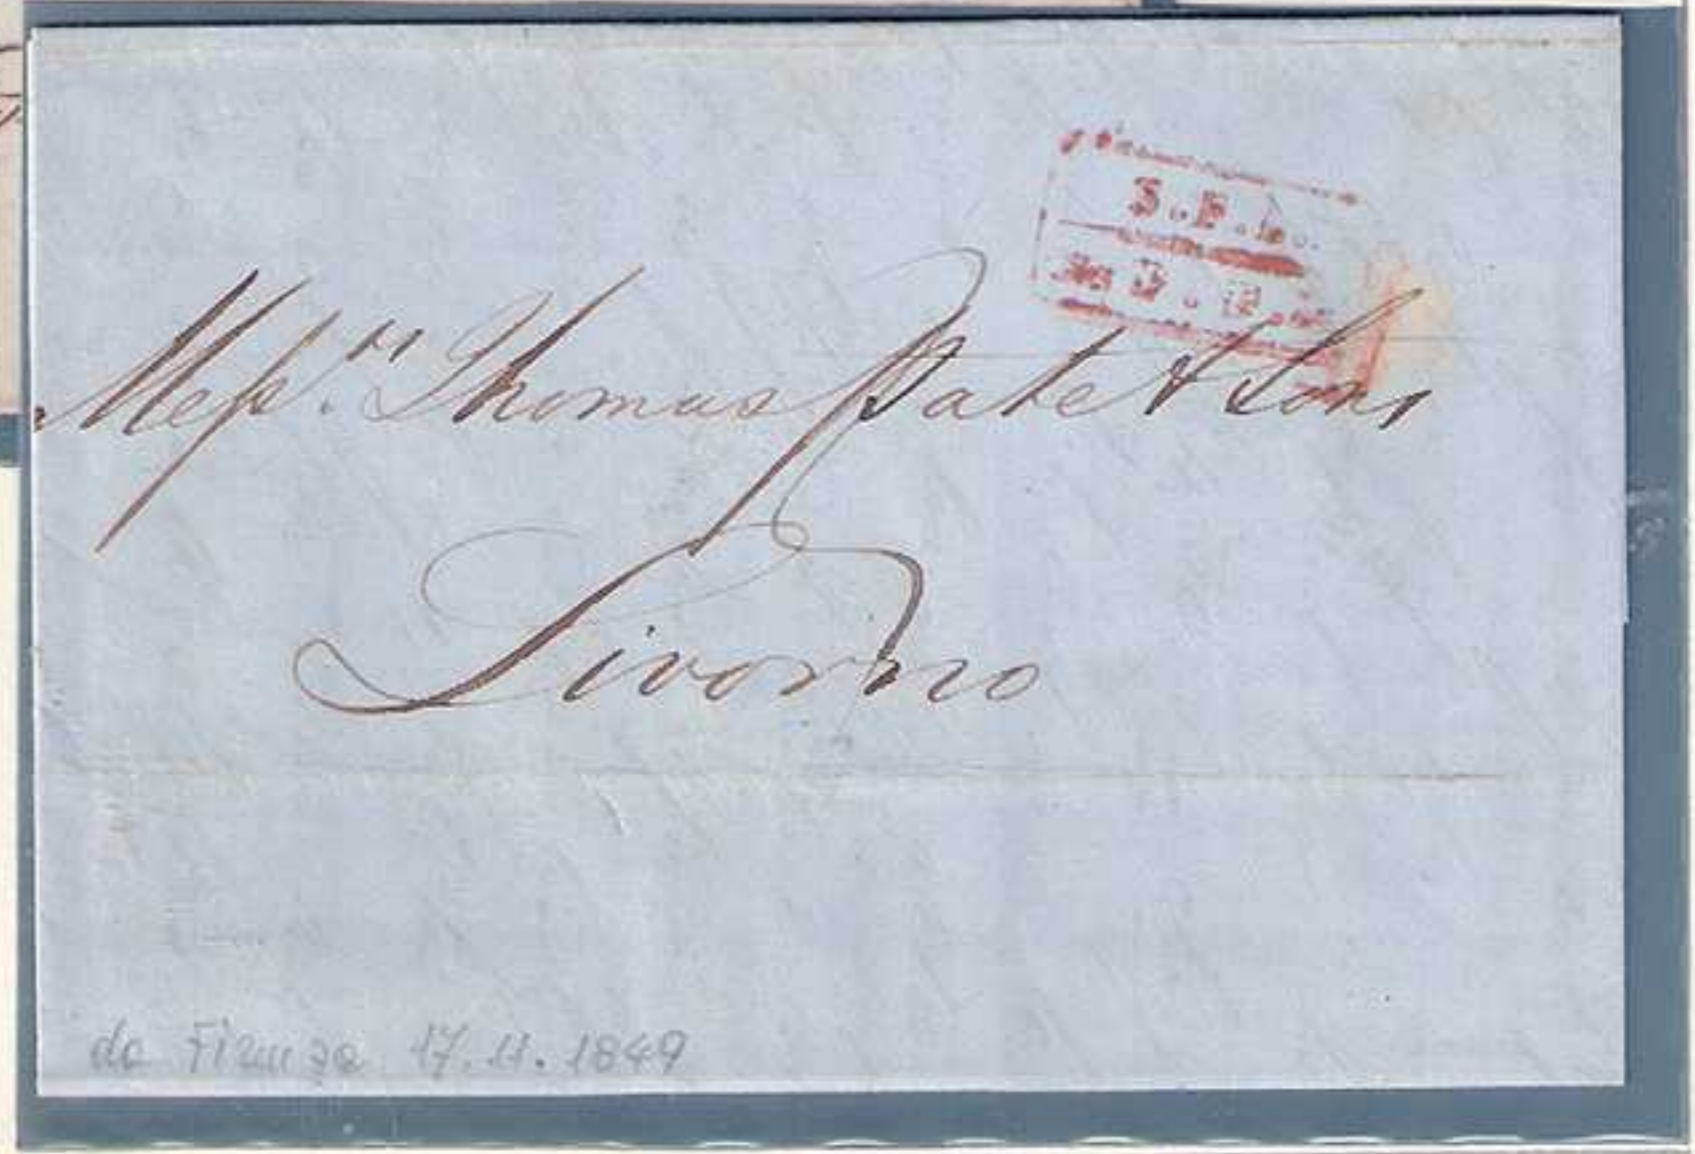 S.F.L.
Messrs. Thomas Pate & Sons
Livorno
da Firenze 17.11.1849